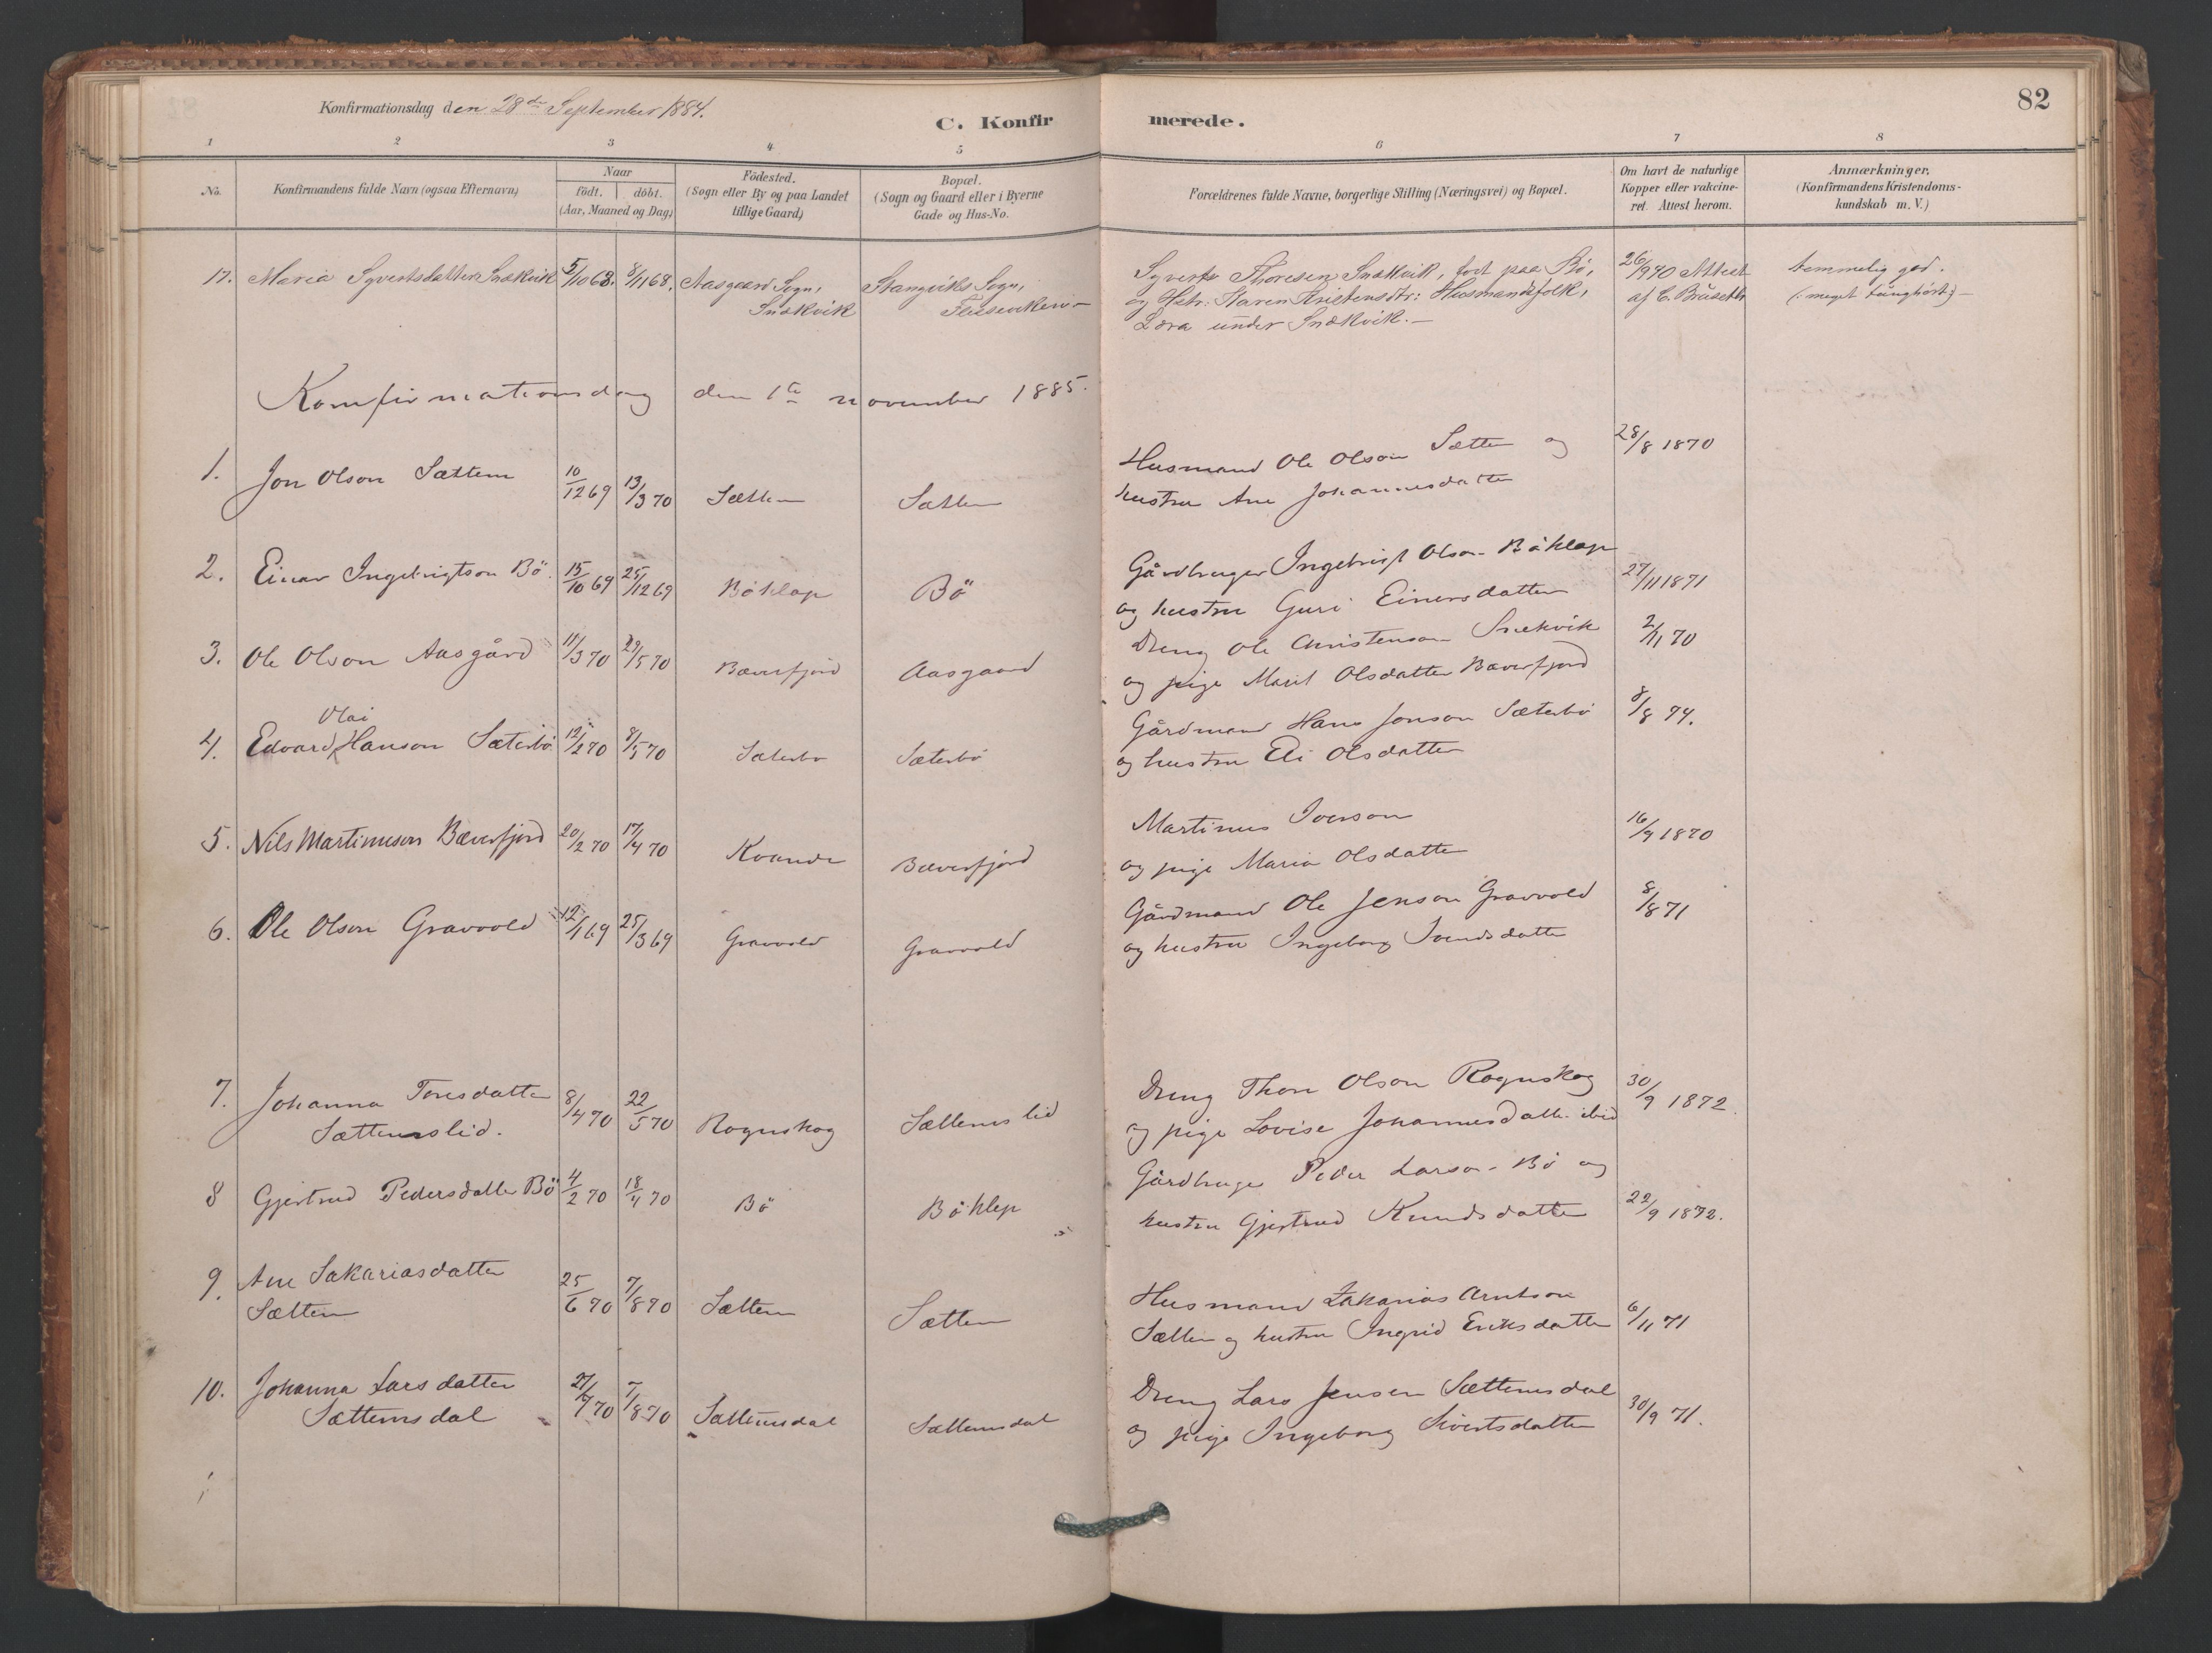 82
Konfirmationsdag den 28de September 1884.
C. Konfirmerede.
1 2 3 4 5 6 7 8
No. Konfirmandens fulde Navn (ogsaa Efternavn) Naar födt. döbt. (Aar, Maaned og Dag) Födested. (Sogn eller By og paa Landet tillige Gaard) Bopæl. (Sogn og Gaard eller i Byerne Gade og Hus-No. Forældrenes fulde Navne, borgerlige Stilling (Næringsvei) og Bopæl. Om havt de naturlige Kopper eller vakcineret. Attest herom. Anmærkninger. (Konfirmandens Kristendomskundskab m. V.)
17. Maria Syvertsdatter Snækvik 5/10 68. 8/11 68. Aasgaard Sogn, Stangviks Sogn, Syvert Thoresen Snækvik, født paa Bø, 26/9 70 Attest temmelig god.
Snækvik og Hstr: Karen Kristensdtr: Husmandsfolk, af C. Bräseth (: meget tunghört :) –
Løra under Snækvik. –
Konfirmationsdag den 1te november 1885.
1. Jon Olson Sættem 10/12 69 13/3 70 Sættem Sættem Husmand Ole Olson Sættem og 28/8 1870
hustru Ane Johannesdatter
2. Einar Ingebrigtson Bö. 15/10 69 25/12 69 Böklep Bö Gårdbruger Ingebrigt Olson Böklep 27/11 1871
og hustru Guri Einersdatter
3. Ole Olson Aasgård 11/3 70 29/5 70 Bæverfjord Aasgaard Dreng Ole Christenson Snekvik 2/11 70
og pige Marit Olsdatter Bæverfjord
Olai
4. Edvard Hanson Sæterbö 12/2 70 8/5 70 Sæterbö Sæterbö Gårdmand Hans Jonson Sæterbö 8/8 74.
og hustru Eli Olsdatter
5. Nils Martinuson Bæverfjord 20/2 70 17/4 70 Kvande Bæverfjord Martinus Iverson 16/9 1870
og pige Maria Olsdatter
6. Ole Olson Gravvold 12/1 69 25/3 69 Gravvold Gravvold Gårdmand Ole Jenson Gravvold 8/8 71
og hustru Ingeborg
7. Johanna Toresdatter 8/4 70 22/5 70 Rognskog Sættemslid Dreng Thore Olson Rognskog 30/9 1872.
Sættemslid. og pige Lovise Johannesdatt. ibid
8 Gjertrud Pedersdatter Bö 4/2 70 18/4 70 Bö Böklep Gårdbruger Peder Larson Bö og 22/9 1872.
hustru Gjertrud Knudsdatter
9. Ane Sakariasdatter 25/6 70 7/8 70 Sættem Sættem Husmand Zakarias Arntson 6/11 71
Sættem Sættem og hustru Ingrid Eriksdatter
10. Johanna Larsdatter 27/7 70 7/8 70 Sættemsdal Sættemsdal Dreng Lars Jensen Sættemsdal 30/9 71.
Sættemsdal og pige Ingeborg Sivertsdatter